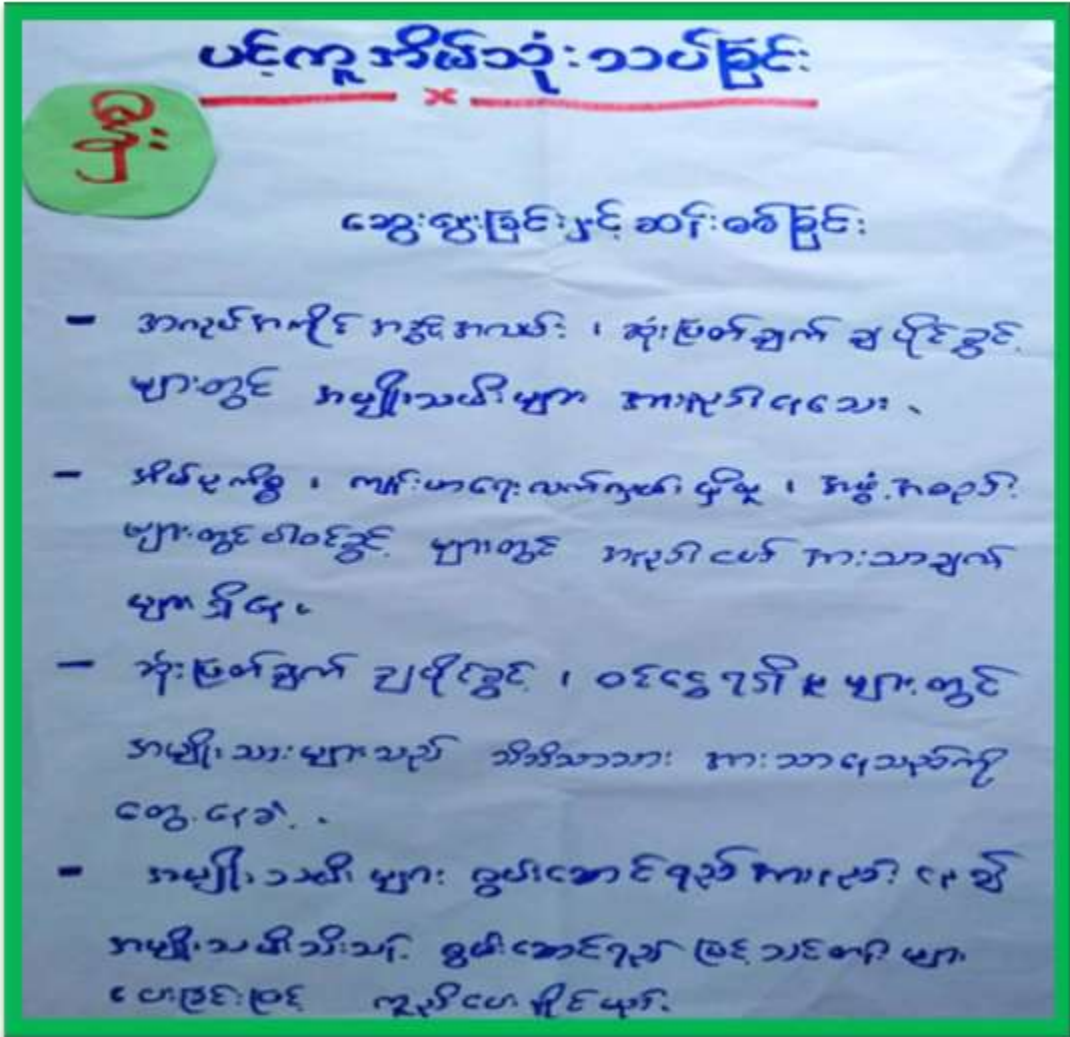 ပင့်ကူအိမ်သုံးသပ်ခြင်း
ဦး
ဆွေးနွေးခြင်းနှင့် ဆန်းစစ်ခြင်း
- အလုပ်အကိုင် အခွင့်အလမ်း ၊ ဆုံးဖြတ်ချက် ချပိုင်ခွင့်
များတွင် အမျိုးသမီးများ အားနည်းနေသေး ။
- အိမ်မှုကိစ္စ ၊ ကျန်းမာရေးလက်လှမ်းမှီမှု ၊ အဖွဲ့အစည်း
များတွင် ပါဝင်ခွင့် များတွင် အနည်းငယ် အားသာချက်
များရှိနေ ။
- ဆုံးဖြတ်ချက် ချပိုင်ခွင့် ၊ ဝင်ငွေရရှိမှု များတွင်
အမျိုးသားများသည် သိသိသာသာ အားသာနေသည်ကို
တွေ့နေရ ။
- အမျိုးသမီးများ စွမ်းဆောင်ရည် အားနည်းနေ၍
အမျိုးသမီးသီးသန့် စွမ်းဆောင်ရည် မြှင့်သင်တန်းများ
ပေးခြင်းဖြင့် ကူညီပေးနိုင်မည်။